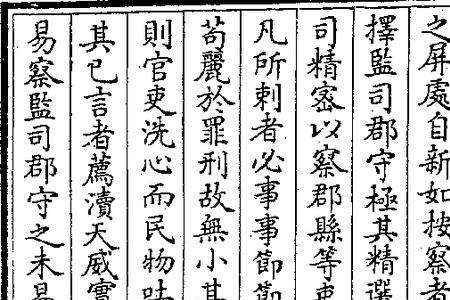 之屏處自新如按察者
擇監司郡守極其精選
司精宻以察郡縣等吏
凡所刺者必事事節節
苟麗於罪刑故無小其
則官吏洗心而民物
其已言者薦瀆天威實
易察監司郡守之未易